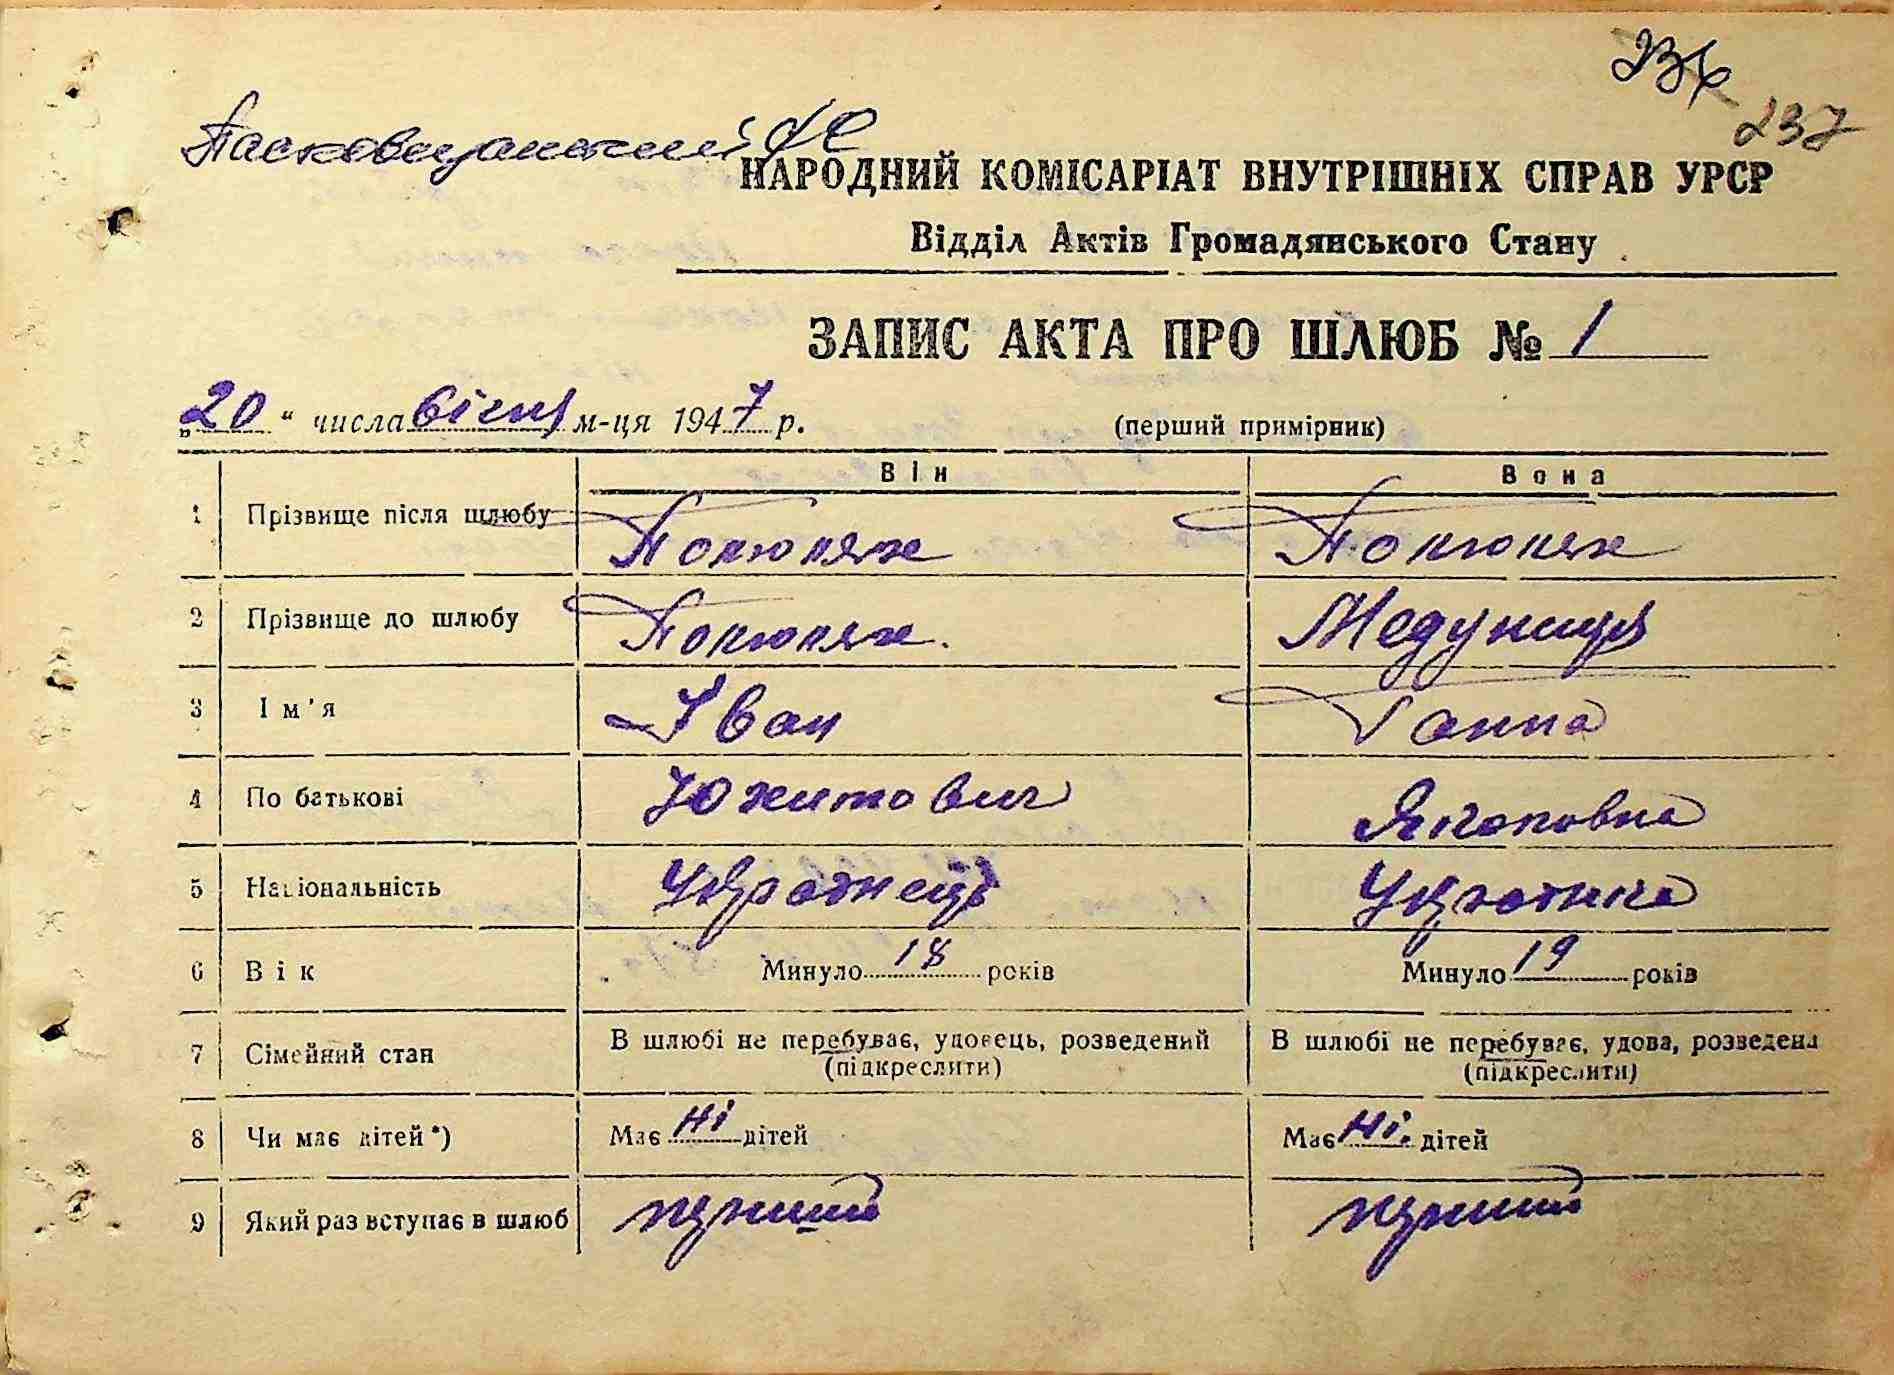 236
237
НАРОДНИЙ КОМІСАРІАТ ВНУТРІШНІХ СПРАВ УРСР
Відділ Актів Громадянського Стану
ЗАПИС АКТА ПРО ШЛЮБ № 1
„20“ числа січня м-ця 1947 р. (перший примірник)
Він Вона
1 Прізвище після шлюбу Попюпях Попюпях
2 Прізвище до шлюбу Попюпях. Медуниця
3 Ім'я Іван Ганна
4 По батькові Юхитович
5 Національність Українець Українка
6 Вік Минуло 18 років Минуло 19 років
7 Сімейний стан В шлюбі не перебуває, удовець, розведений (підкреслити) В шлюбі не перебуває, удова, розведена (підкреслити)
8 Чи має дітей*) Має ні дітей Має ні. дітей
9 Який раз вступає в шлюб перший перший